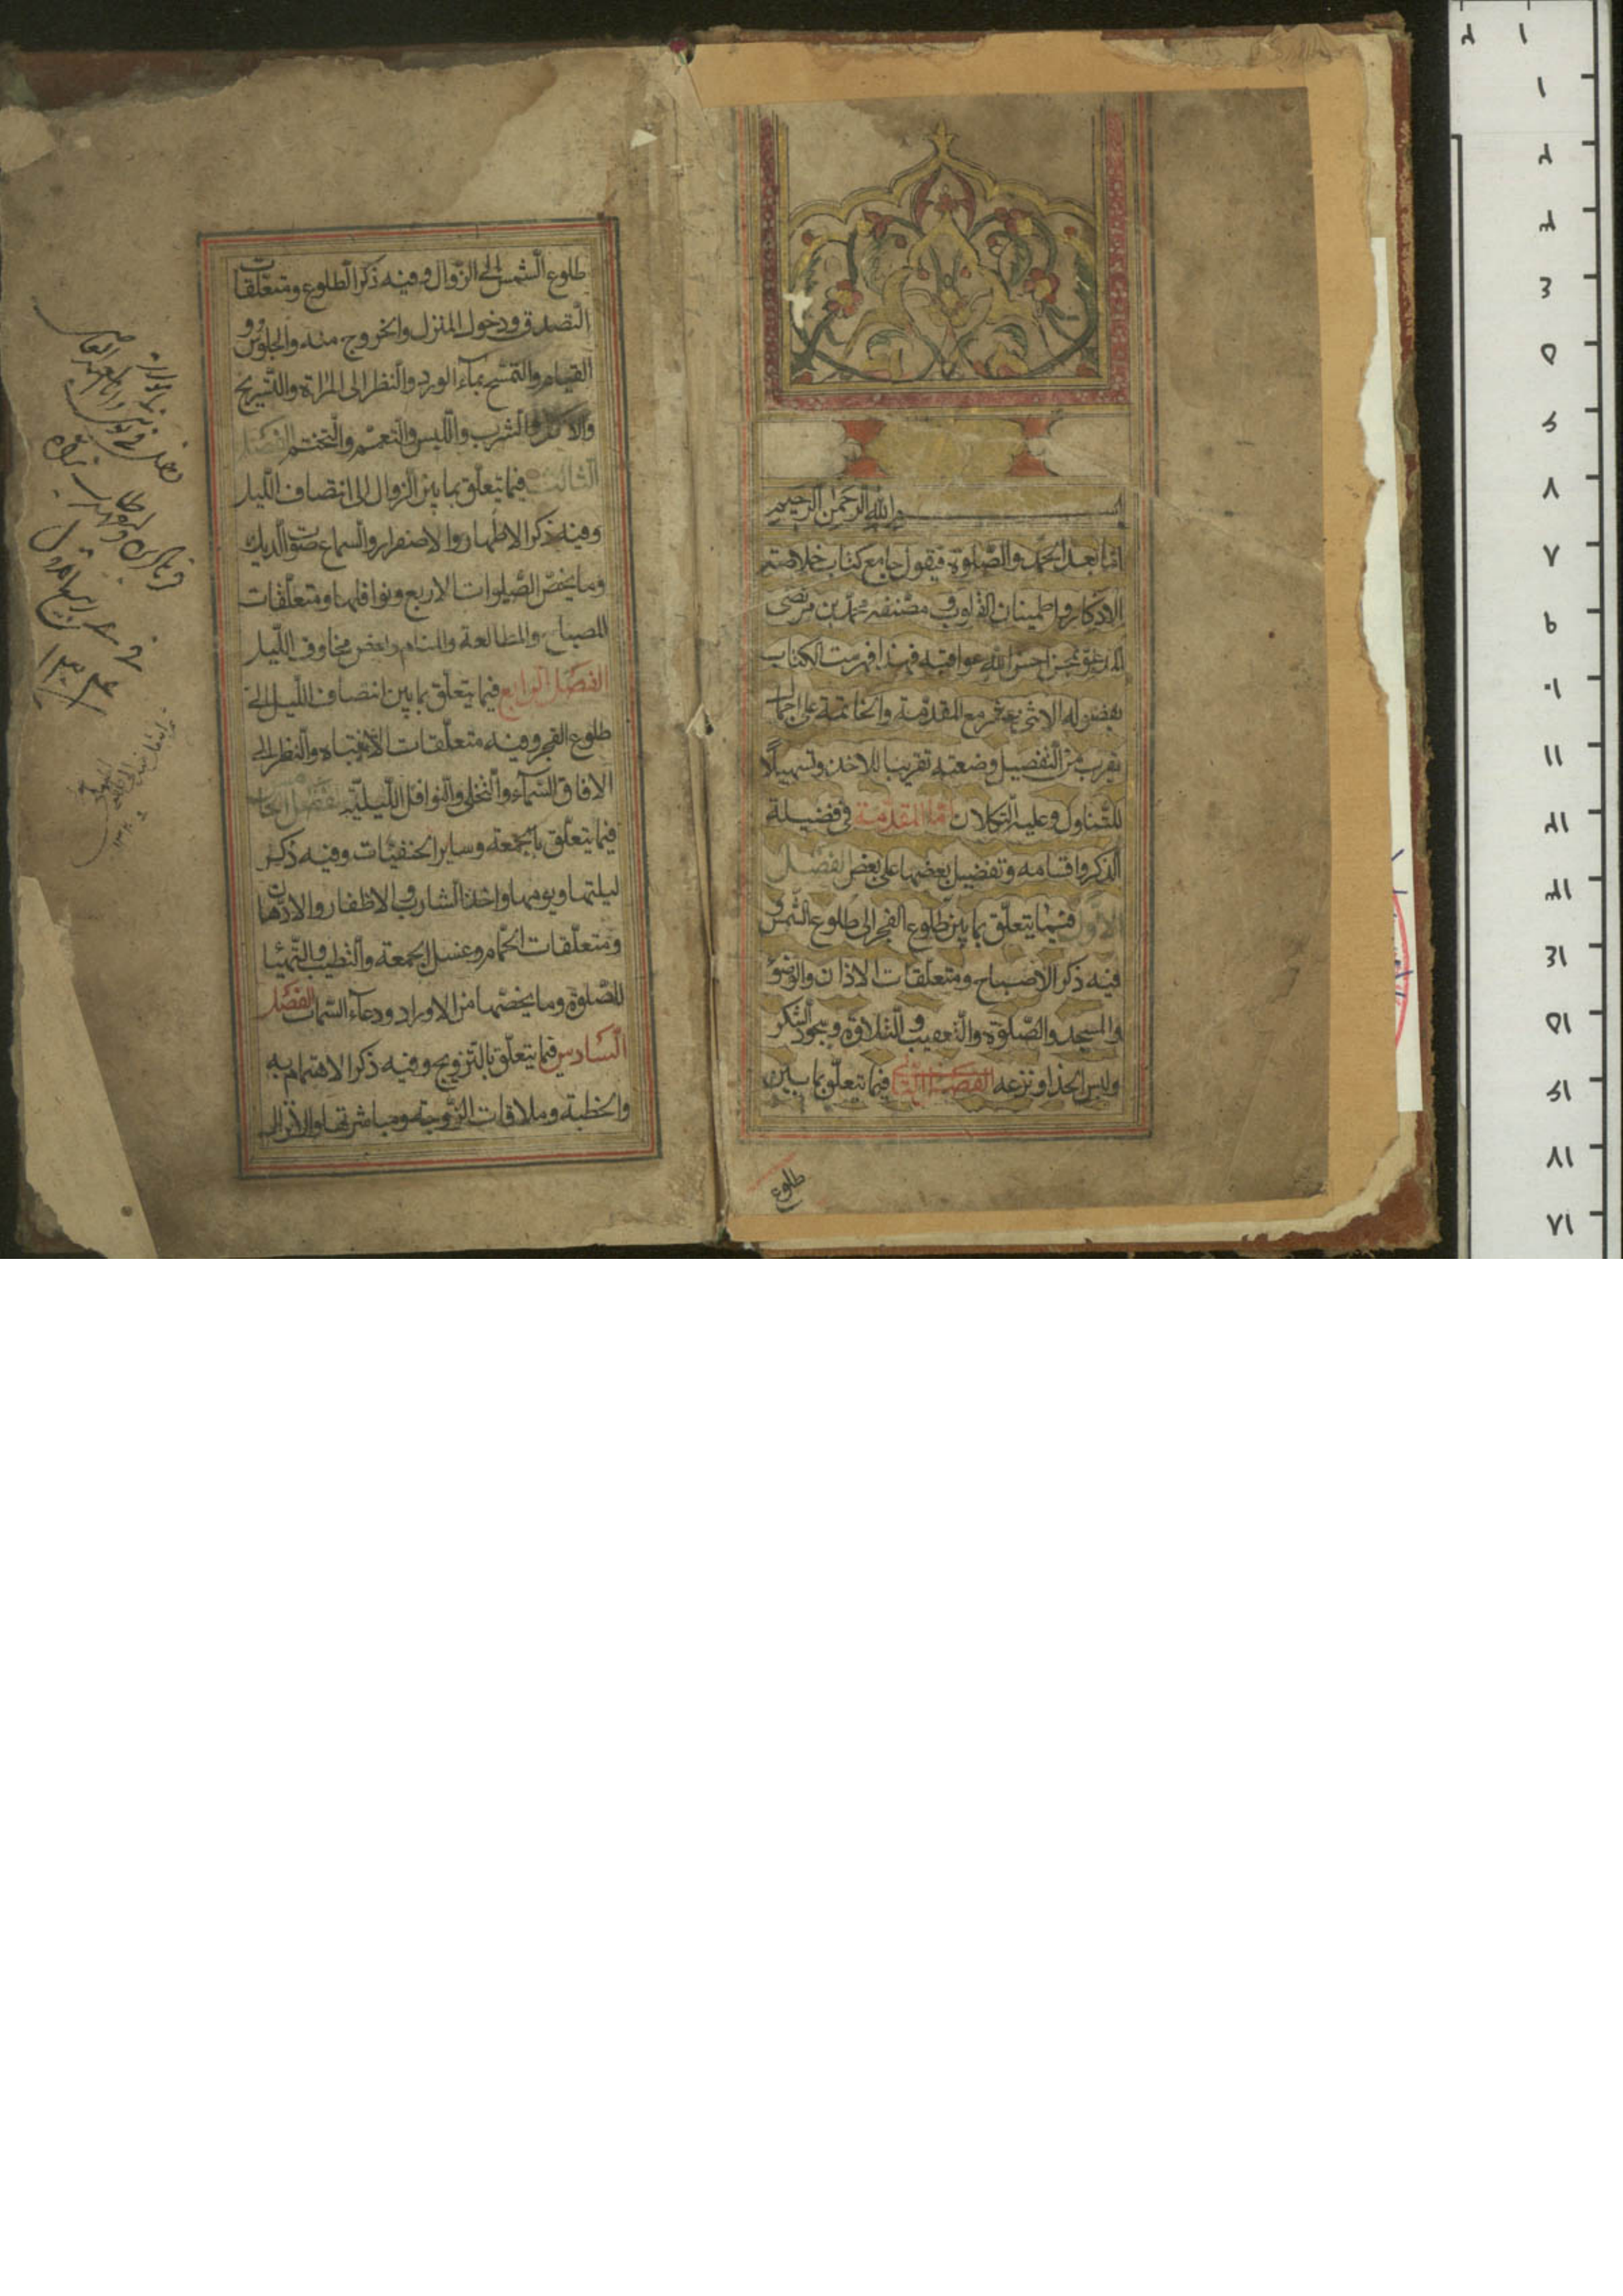 بسم الله الرحمن الرحيم
اما بعد الحمد والصلوة فيقول جامع كتاب خلاصة
الاذكار واطمينان القلوب ومصنفه محمد بن مرتضى
المدعو بمحسن احسن الله عواقبه فهذا فهرست الكتاب
بفصوله الاثنى عشر مع المقدمة والخاتمة على اجمال
يقرب من التفصيل وضعته تقريبا للاخذ وتسهيلا
للتناول وعليه التكلان اما المقدمة ففى فضيلة
الذكر واقسامه وتفضيل بعضها على بعض الفصل
الاول فيما يتعلق بما بين طلوع الفجر الى طلوع الشمس و
فيه ذكر الاصباح ومتعلقات الاذان والوضوء
والمسجد والصلوة والتعقيب والتلاوة وسجود الشكر
ولبس الحذاء ونزعه الفصل الثانى فيما يتعلق بما بين
طلوع
طلوع الشمس الى الزوال وفيه ذكر الطلوع ومتعلقات
التصدق ودخول المنزل والخروج منه والجلوس و
القيام والتمسح بماء الورد والنظر الى المراة والتسريح
والاكل والشرب واللبس والتعمم والتختم الفصل
الثالث فيما يتعلق بما بين الزوال الى انتصاف الليل
وفيه ذكر الاظهار والاصفرار والسماع صوت الديك
وما يخص الصلوات الاربع ونوافلها ومتعلقات
المصباح والمطالعة والمنام وبعض مخاوف الليل
الفصل الرابع فيما يتعلق بما بين انتصاف الليل الى
طلوع الفجر وفيه متعلقات الانتباه والنظر الى
الافاق السماء والتخلى والنوافل الليلية الفصل الخامس
فيما يتعلق بالجمعة وساير الحنفيات وفيه ذكر
ليلتها ويومها واخذ الشارب والاظفار والادهان
ومتعلقات الحمام وغسل الجمعة والتطيب والتهيا
للصلوة وما يخصها من الاوراد ودعاء السمات الفصل
السادس فيما يتعلق بالتزويج وفيه ذكر الاهتمام به
والخطبة وملاقات الزوجة ومباشرتها والانزال